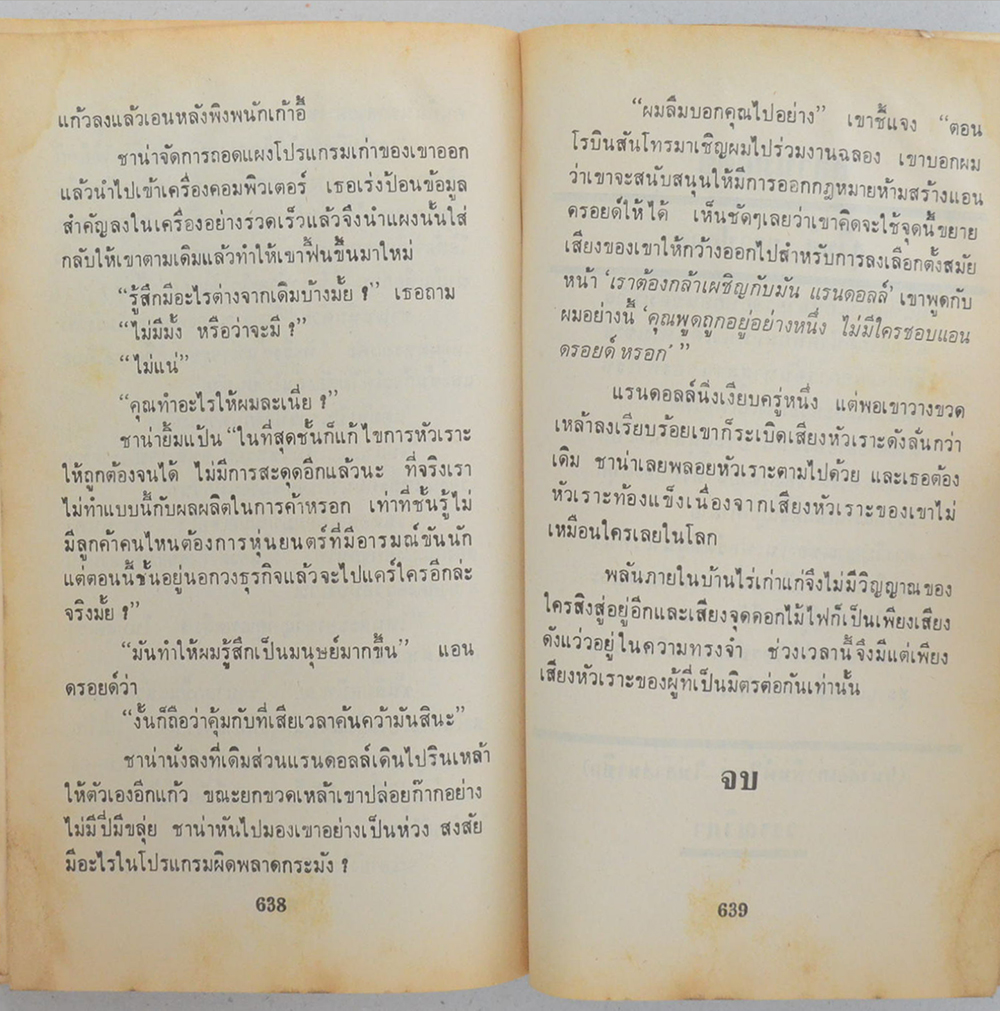 แก้วลงแล้วเอนหลังพิงพนักเก้าอี้
ชาน่าจัดการถอดแผงโปรแกรมเก่าของเขาออก
แล้วนำไปเข้าเครื่องคอมพิวเตอร์ เธอเร่งป้อนข้อมูล
สำคัญลงในเครื่องอย่างรวดเร็วแล้วจึงนำแผงนั้นใส่
กลับให้เขาตามเดิมแล้วทำให้เขาฟื้นขึ้นมาใหม่
“รู้สึกมีอะไรต่างจากเดิมบ้างมั้ย ?” เธอถาม
“ไม่มีมั้ง หรือว่าจะมี ?”
“ไม่แน่”
“คุณทำอะไรให้ผมละเนี่ย ?”
ชาน่ายิ้มแป้น “ในที่สุดชั้นก็แก้ไขการหัวเราะ
ให้ถูกต้องจนได้ ไม่มีการสะดุดอีกแล้วนะ ที่จริงเรา
ไม่ทำแบบนี้กับผลผลิตในการค้าหรอก เท่าที่ชั้นรู้ไม่
มีลูกค้าคนไหนต้องการหุ่นยนตร์ที่มีอารมณ์ขันนัก
แต่ตอนนี้ชั้นอยู่นอกวงธุรกิจแล้วจะไปแคร์ใครอีกล่ะ
จริงมั้ย ?”
“มันทำให้ผมรู้สึกเป็นมนุษย์มากขึ้น” แอน
ดรอยด์ว่า
“งั้นก็ถือว่าคุ้มกับที่เสียเวลาค้นคว้ามันสินะ”
ชาน่านั่งลงที่เดิมส่วนแรนดอลล์เดินไปรินเหล้า
ให้ตัวเองอีกแก้ว ขณะยกขวดเหล้าเขาปล่อยก๊ากอย่าง
ไม่มีปี่มีขลุ่ย ชาน่าหันไปมองเขาอย่างเป็นห่วง สงสัย
มีอะไรในโปรแกรมผิดพลาดกระมัง ?
638
“ผมลืมบอกคุณไปอย่าง” เขาชี้แจง “ตอน
โรบินสันโทรมาเชิญผมไปร่วมงานฉลอง เขาบอกผม
ว่าเขาจะสนับสนุนให้มีการออกกฎหมายห้ามสร้างแอน
ดรอยด์ให้ได้ เห็นชัดๆเลยว่าเขาคิดจะใช้จุดนี้ขยาย
เสียงของเขาให้กว้างออกไปสำหรับการลงเลือกตั้งสมัย
หน้า ‘เราต้องกล้าเผชิญกับมัน แรนดอลล์’ เขาพูดกับ
ผมอย่างนี้ ‘คุณพูดถูกอยู่อย่างหนึ่ง ไม่มีใครชอบแอน
ดรอยด์หรอก’ ”
แรนดอลล์นิ่งเงียบครู่หนึ่ง แต่พอเขาวางขวด
เหล้าลงเรียบร้อยเขาก็ระเบิดเสียงหัวเราะดังลั่นกว่า
เดิม ชาน่าเลยพลอยหัวเราะตามไปด้วย และเธอต้อง
หัวเราะท้องแข็งเนื่องจากเสียงหัวเราะของเขาไม่
เหมือนใครเลยในโลก
พลันภายในบ้านไร่เก่าแก่จึงไม่มีวิญญาณของ
ใครสิงสู่อยู่อีกและเสียงจุดดอกไม้ไฟก็เป็นเพียงเสียง
ดังแว่วอยู่ในความทรงจำ ช่วงเวลานี้จึงมีแต่เพียง
เสียงหัวเราะของผู้ที่เป็นมิตรต่อกันเท่านั้น
จบ
639